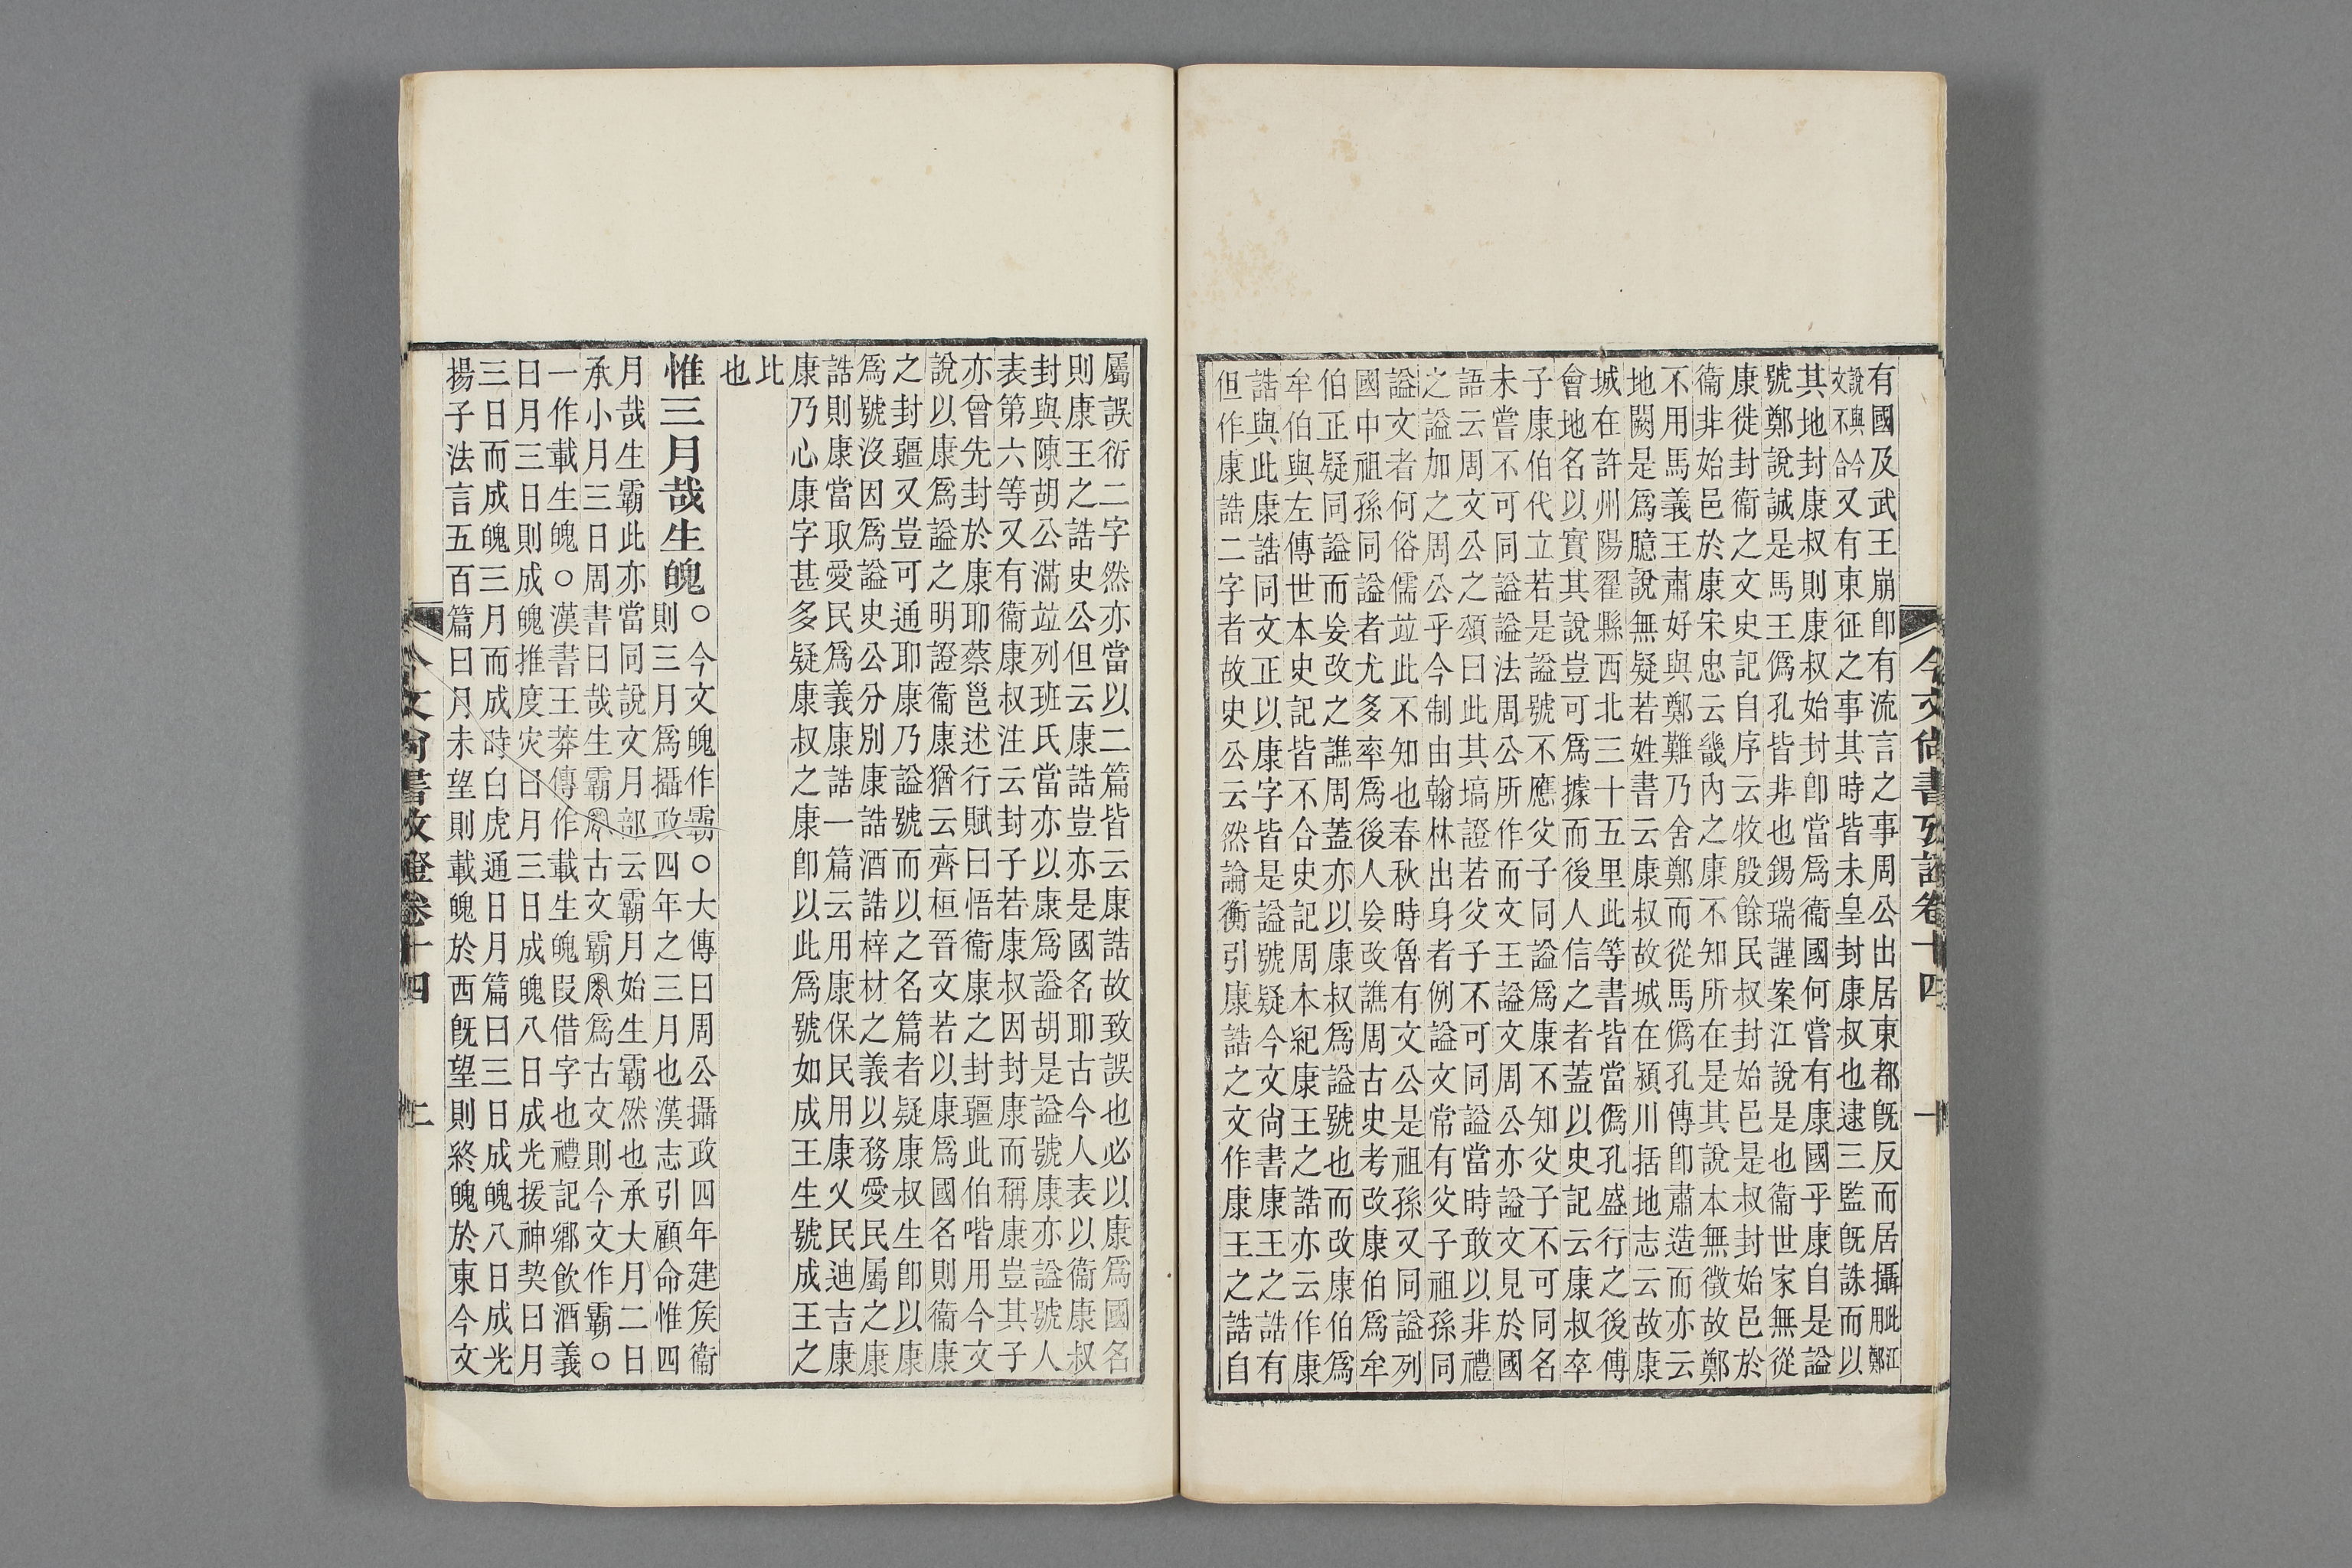 有國及武王崩卽有流言之事周公出居東都旣反而居攝此江用鄭
說與今文不合又有東征之事其時皆未皇封康叔也逮三監旣誅而以
其地封康叔則康叔始封卽當爲衞國何嘗有康國乎康自是謚
號鄭說誠是馬王僞孔皆非也錫瑞謹案江說是也衞世家無從
康徙封衞之文史記自序云牧殷餘民叔封始邑是叔封始邑於
衞非始邑於康宋忠云畿內之康不知所在是其說本無徵故鄭
不用馬義王肅好與鄭難乃舍鄭而從馬僞孔傳卽肅造而亦云
地闕是爲臆說無疑若姓書云康叔故城在潁川括地志云故康
城在許州陽翟縣西北三十五里此等書皆當僞孔盛行之後傅
會地名以實其說豈可爲據而後人信之者蓋以史記云康叔卒
子康伯代立若是謚號不應父子同謚爲康不知父子不可同名
未嘗不可同謚謚法周公所作而文王謚文周公亦謚文見於國
語云周文公之頌曰此其塙證若父子不可同謚當時敢以非禮
之謚加之周公乎今制由翰林出身者例謚文常有父子祖孫同
謚文者何俗儒竝此不知也春秋時魯有文公是祖孫又同謚列
國中祖孫同謚者尤多率爲後人妄改譙周古史考改康伯爲牟
伯正疑同謚而妄改之譙周蓋亦以康叔爲謚號也而改康伯爲
牟伯與左傳世本史記皆不合史記周本紀康王之誥亦云作康
誥與此康誥同文正以康字皆是謚號疑今文尙書康王之誥有
但作康誥二字者故史公云然論衡引康誥之文作康王之誥自
今文尙書攷證卷十四 一
屬誤衍二字然亦當以二篇皆云康誥故致誤也必以康爲國名
則康王之誥史公但云康誥豈亦是國名耶古今人表以衞康叔
封與陳胡公滿竝列班氏當亦以康爲謚胡是謚號康亦謚號人
表第六等又有衞康叔注云封子若康叔因封康而稱康豈其子
亦曾先封於康耶蔡邕述行賦曰悟衞康之封疆此伯喈用今文
說以康爲謚之明證衞康猶云齊桓晉文若以康爲國名則衞康
之封疆又豈可通耶康乃謚號而以之名篇者疑康叔生卽以康
爲號沒因爲謚史公分別康誥酒誥梓材之義以務愛民屬之康
誥則康當取愛民爲義康誥一篇云用康保民用康乂民迪吉康
康乃心康字甚多疑康叔之康卽以此爲號如成王生號成王之
比
也
惟三月哉生魄○今文魄作霸○大傳曰周公攝政四年建矦衞
則三月爲攝政四年之三月也漢志引顧命惟四
月哉生霸此亦當同說文月部云霸月始生霸然也承大月二日
承小月三日周書曰哉生霸古文霸爲古文則今文作霸○
一作載生魄○漢書王莽傳作載生魄叚借字也禮記鄉飲酒義
曰月三日則成魄推度灾曰月三日成魄八日成光援神契曰月
三日而成魄三月而成時白虎通日月篇曰三日成魄八日成光
揚子法言五百篇曰月未望則載魄於西旣望則終魄於東今文
今文尙書攷證卷十四 二